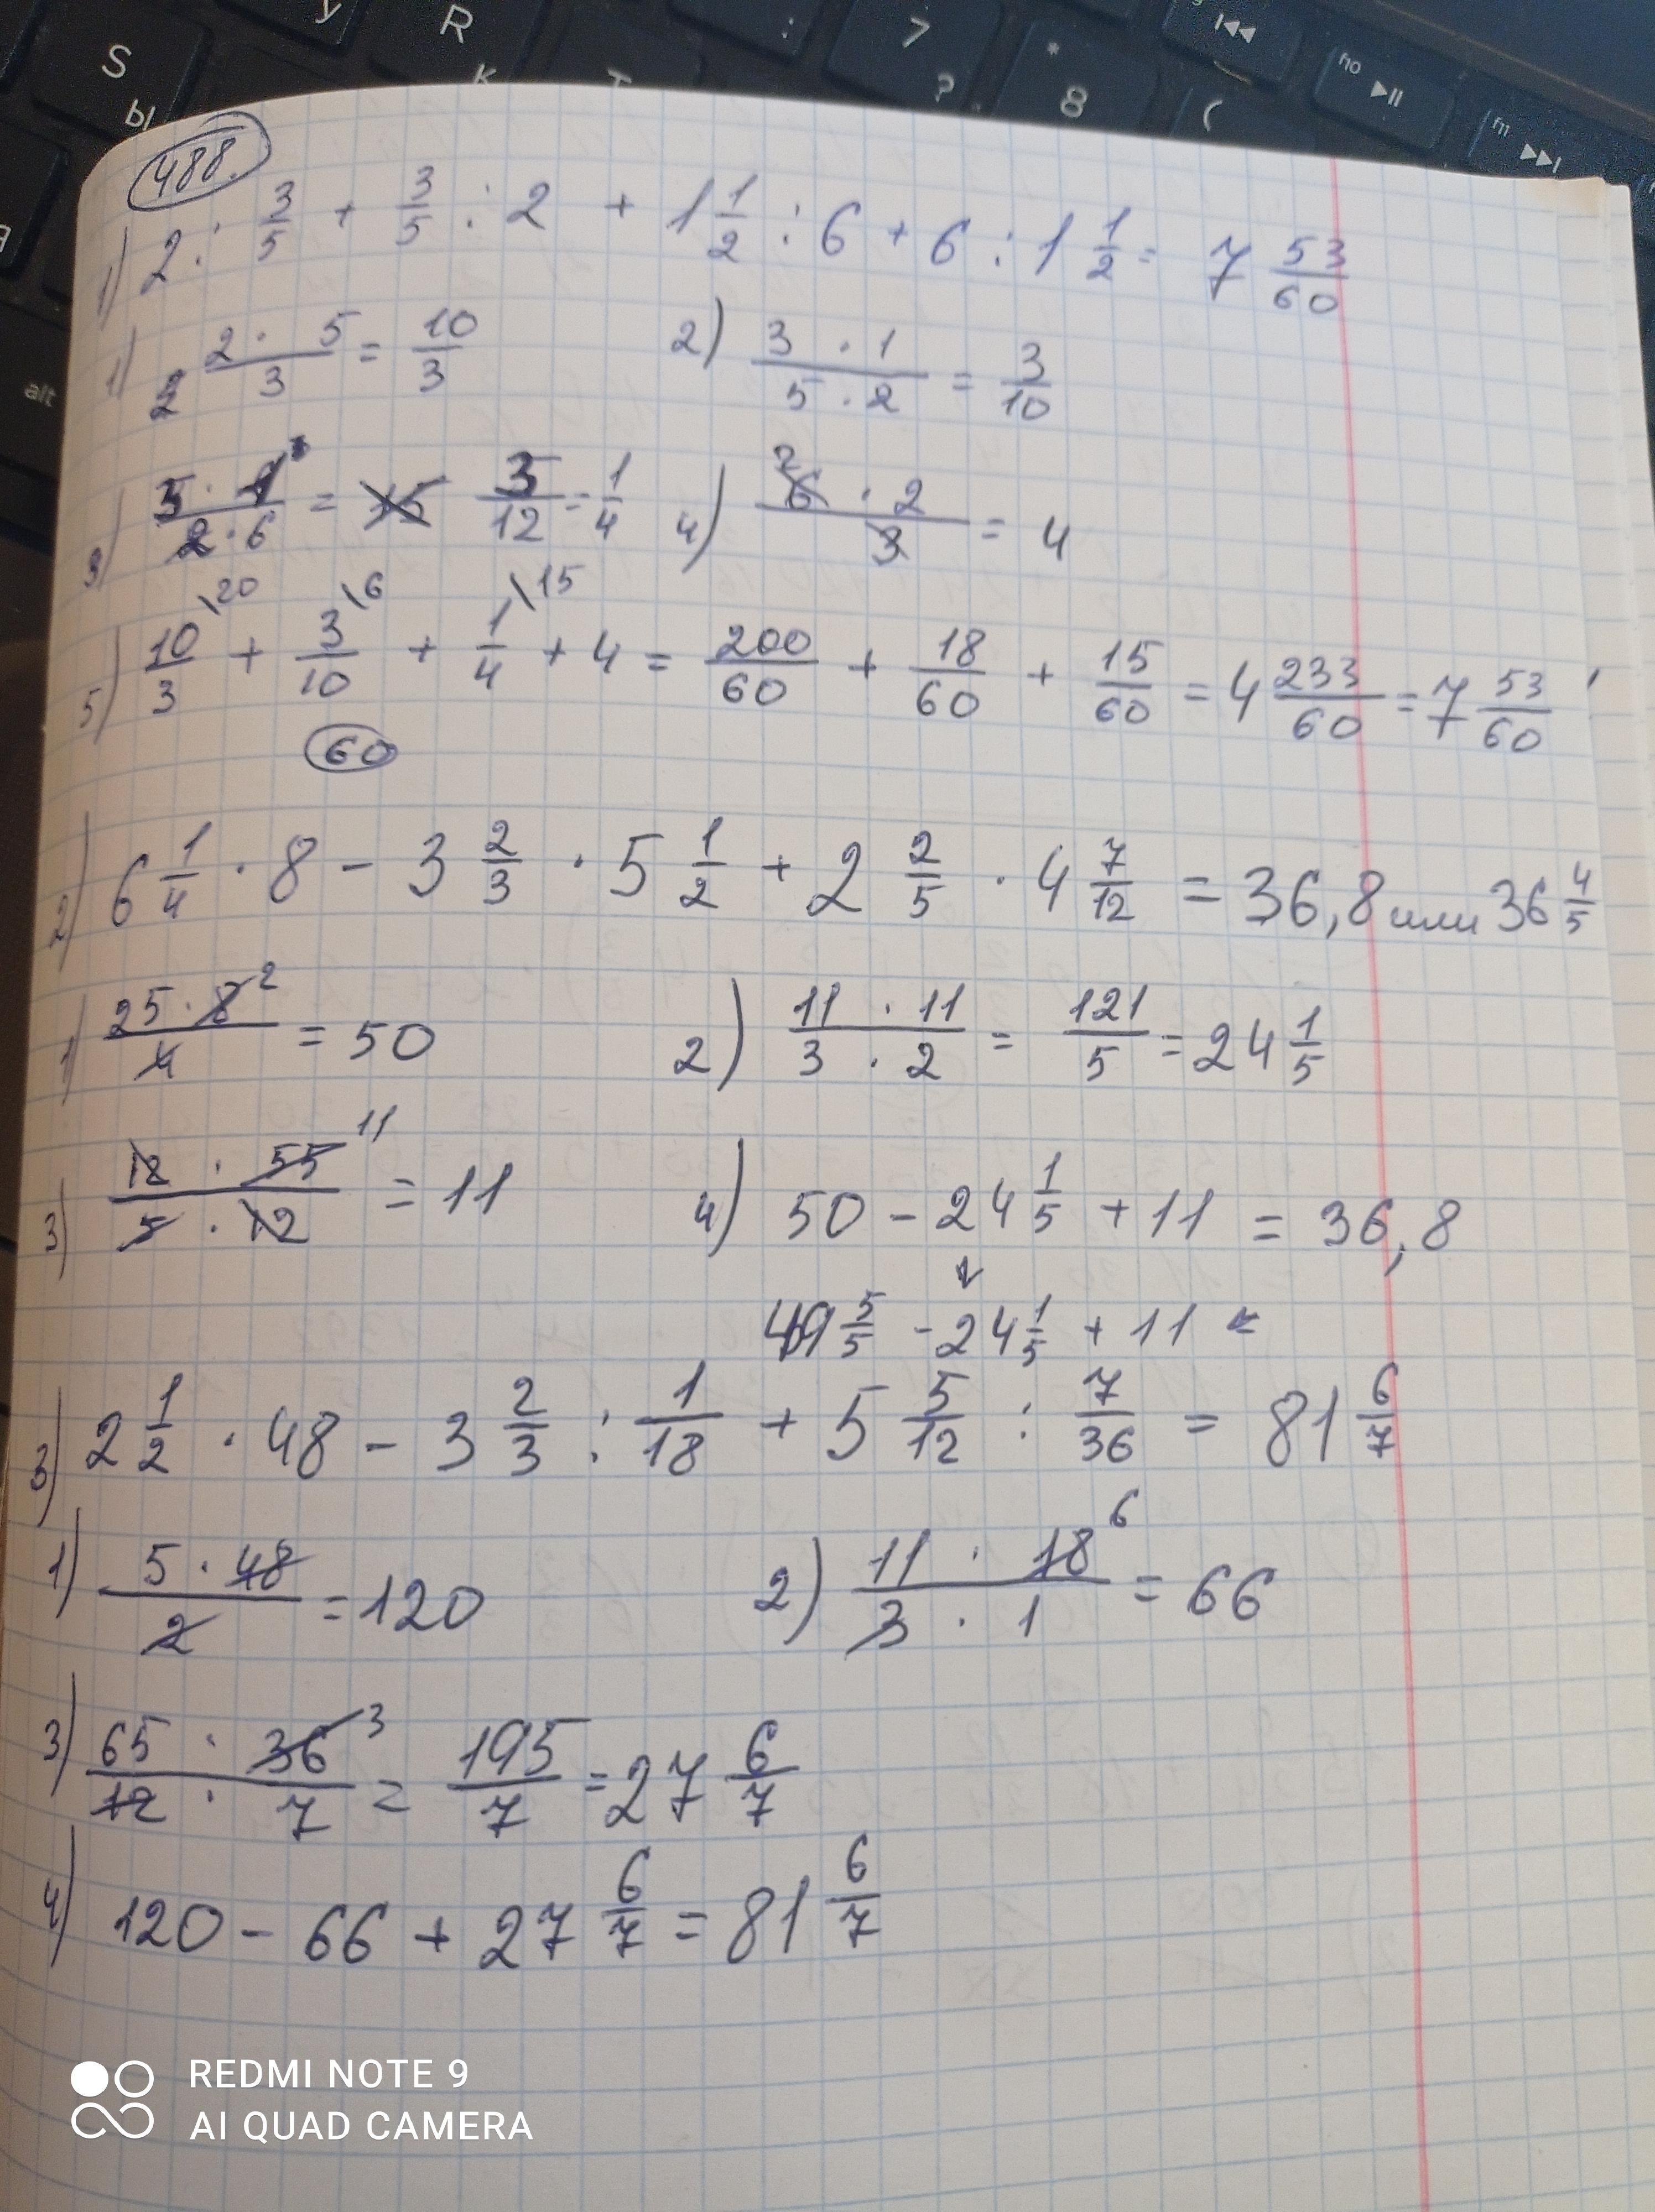 S Ы У R К 7 ? * 8 ( ho fn
alt
488.
1) 2 : 3/5 + 3/5 : 2 + 1 1/2 : 6 + 6 : 1 1/2 = 7 53/60
1) 2 · 5 / 3 = 10/3 2) 3 · 1 / 5 · 2 = 3/10
3) 3 · 1 / 2 · 6 = 3/12 = 1/4 4) 6² · 2 / 3 = 4
5) 10/3 \20 + 3/10 \6 + 1/4 \15 + 4 = 200/60 + 18/60 + 15/60 = 4 233/60 = 7 53/60
60
2) 6 1/4 · 8 - 3 2/3 · 5 1/2 + 2 2/5 · 4 7/12 = 36,8 или 36 4/5
1) 25 · 8² / 4 = 50 2) 11 · 11 / 3 · 2 = 121/5 = 24 1/5
3) 12 · 55 11 / 5 · 12 = 11 4) 50 - 24 1/5 + 11 = 36,8
49 5/5 - 24 1/5 + 11
3) 2 1/2 · 48 - 3 2/3 : 1/18 + 5 5/12 : 7/36 = 81 6/7
1) 5 · 48 / 2 = 120 2) 11 · 18 6 / 3 · 1 = 66
3) 65 · 36 3 / 12 · 7 = 195/7 = 27 6/7
4) 120 - 66 + 27 6/7 = 81 6/7
REDMI NOTE 9
AI QUAD CAMERA